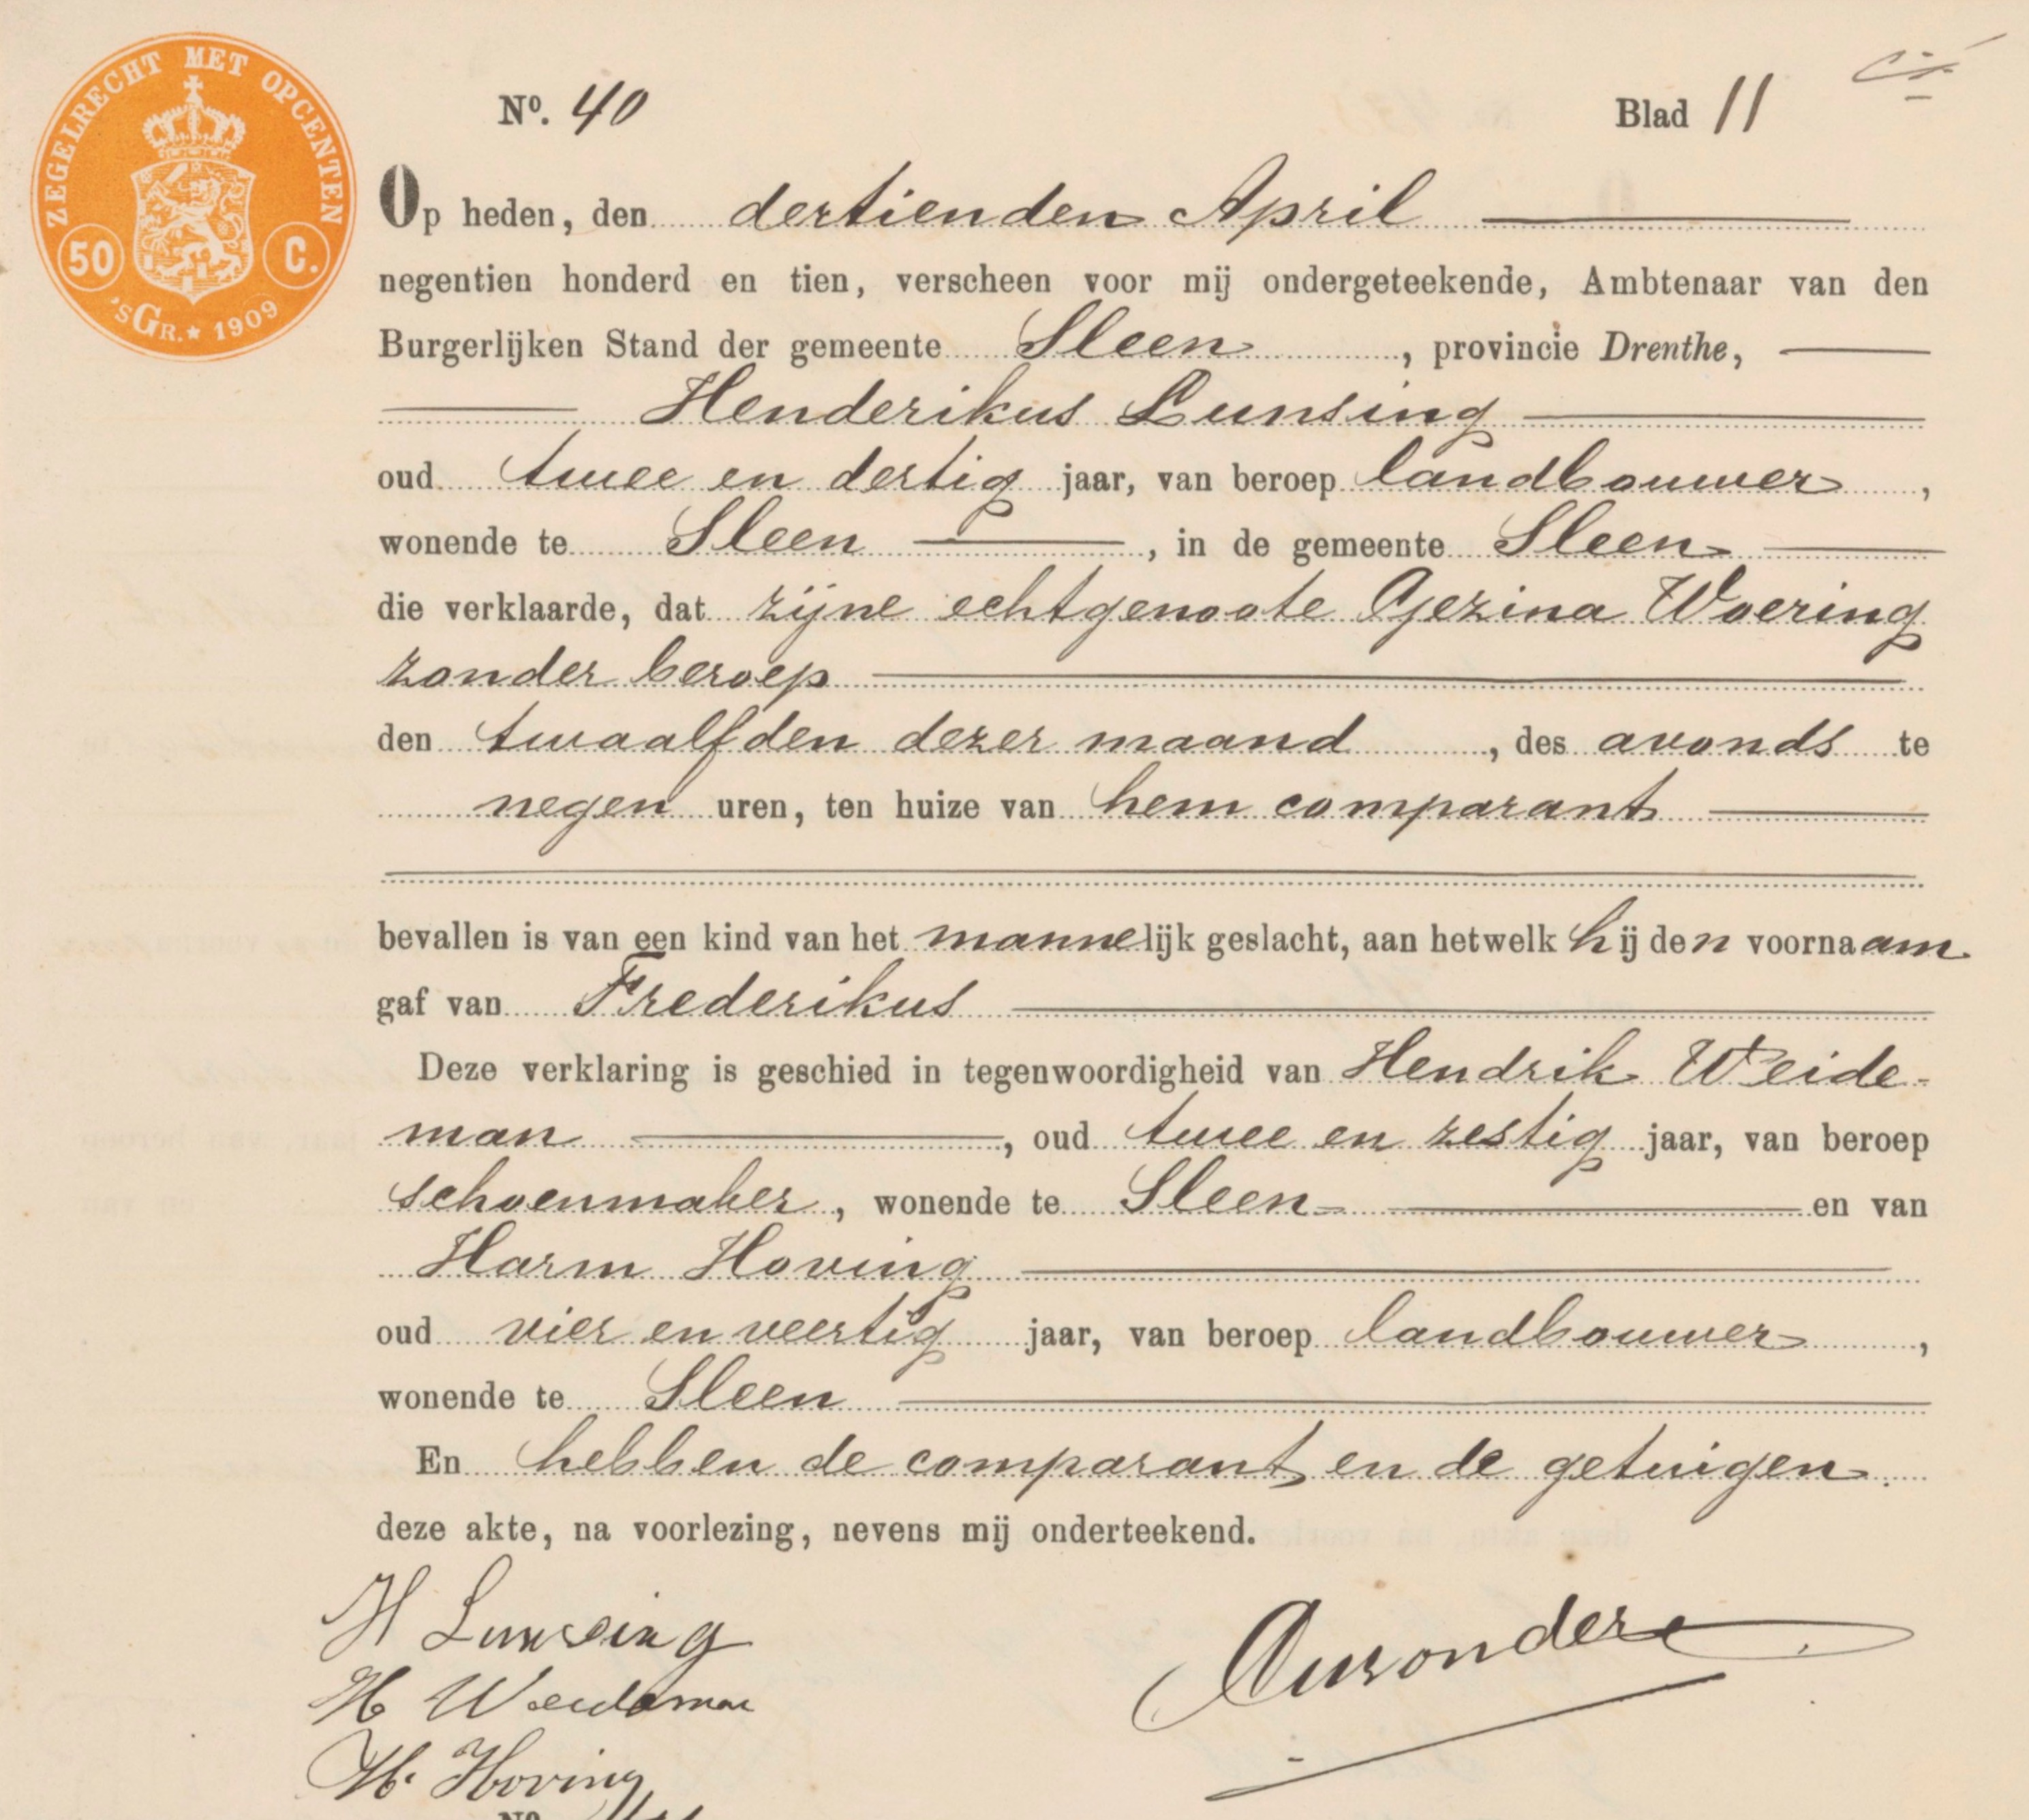 ZEGELRECHT MET OPCENTEN
50 C.
'sGr. ★ 1909
No. 40 Blad 11
Op heden, den dertienden April
negentien honderd en tien, verscheen voor mij ondergeteekende, Ambtenaar van den
Burgerlijken Stand der gemeente Sleen, provincie Drenthe,
Henderikus Lunsing
oud twee en dertig jaar, van beroep landbouwer,
wonende te Sleen, in de gemeente Sleen
die verklaarde, dat zijne echtgenoote Gezina Woering
zonder beroep
den twaalfden dezer maand, des avonds te
negen uren, ten huize van hem comparant
bevallen is van een kind van het mannelijk geslacht, aan hetwelk hij den voornaam
gaf van Frederikus
Deze verklaring is geschied in tegenwoordigheid van Hendrik Weide-
man, oud twee en zestig jaar, van beroep
schoenmaker, wonende te Sleen en van
Harm Hoving
oud vier en veertig jaar, van beroep landbouwer,
wonende te Sleen
En hebben de comparant en de getuigen
deze akte, na voorlezing, nevens mij onderteekend.
H Lunsing
H Weideman
H. Hoving